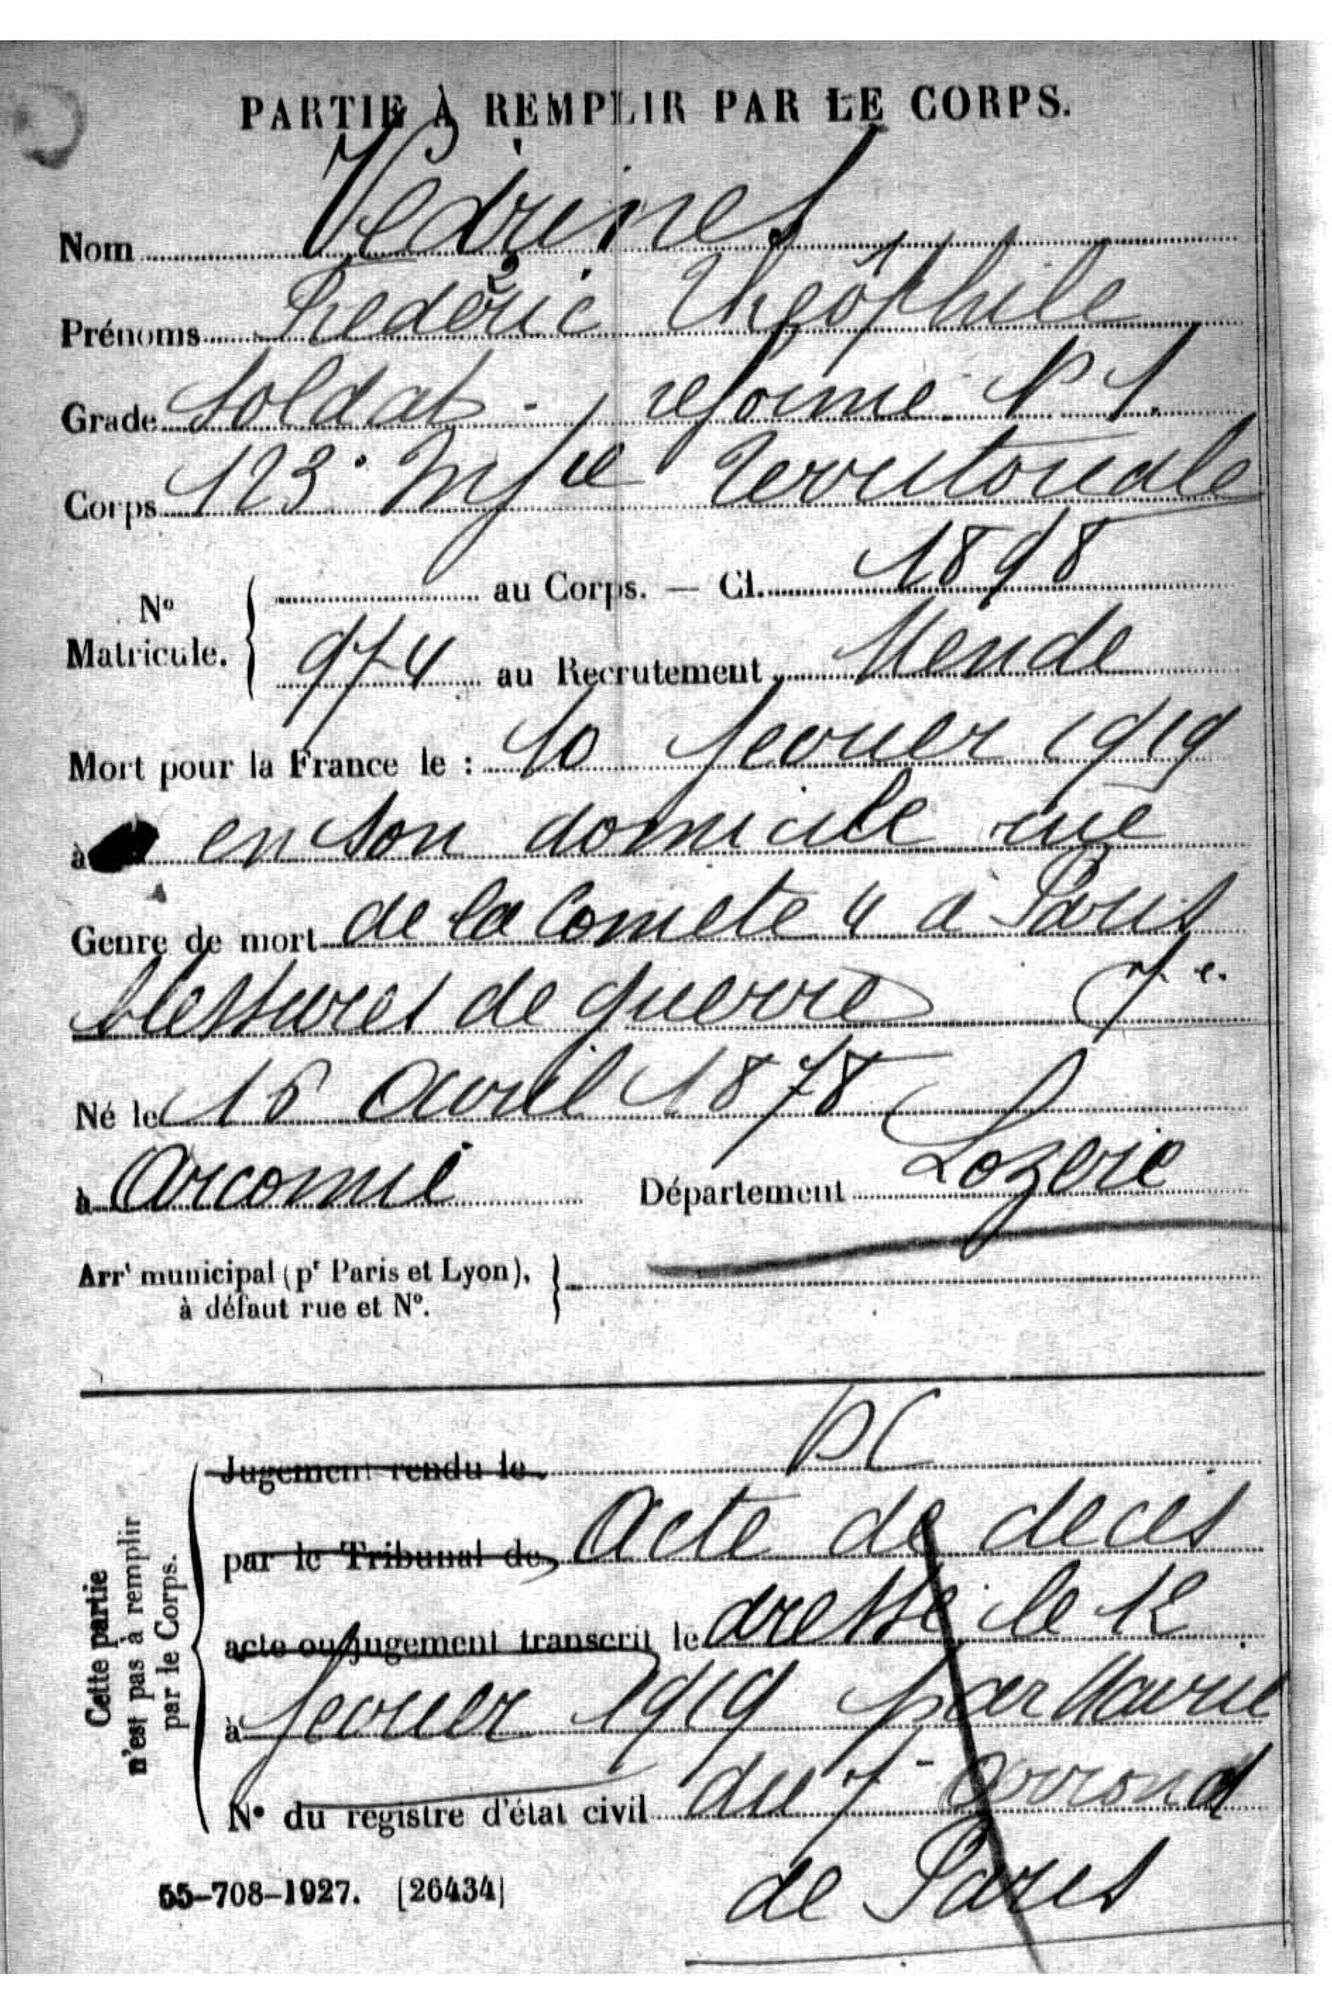 PARTIE À REMPLIR PAR LE CORPS.
Nom Vedrines
Prénoms Frédéric Théophile
Grade Soldat - réformé N° 1.
Corps 123e Infie Territoriale
N° Matricule. { au Corps. — Cl. 1898
974 au Recrutement Mende
Mort pour la France le : 10 février 1919
à en son domicile rue
Genre de mort de la Comète 4 à Paris
blessures de guerre 7e.
Né le 16 avril 1878
à Arcomie Département Lozère
Arrt municipal (pr Paris et Lyon), }
à défaut rue et N°.
Cette partie n'est pas à remplir par le Corps.
Jugement rendu le
par le Tribunal de Acte de décès
acte ou jugement transcrit le dressé le 12
à février 1919 par Mairie
N° du registre d'état civil du 7e arrond
de Paris
55-708-1927. [26434]